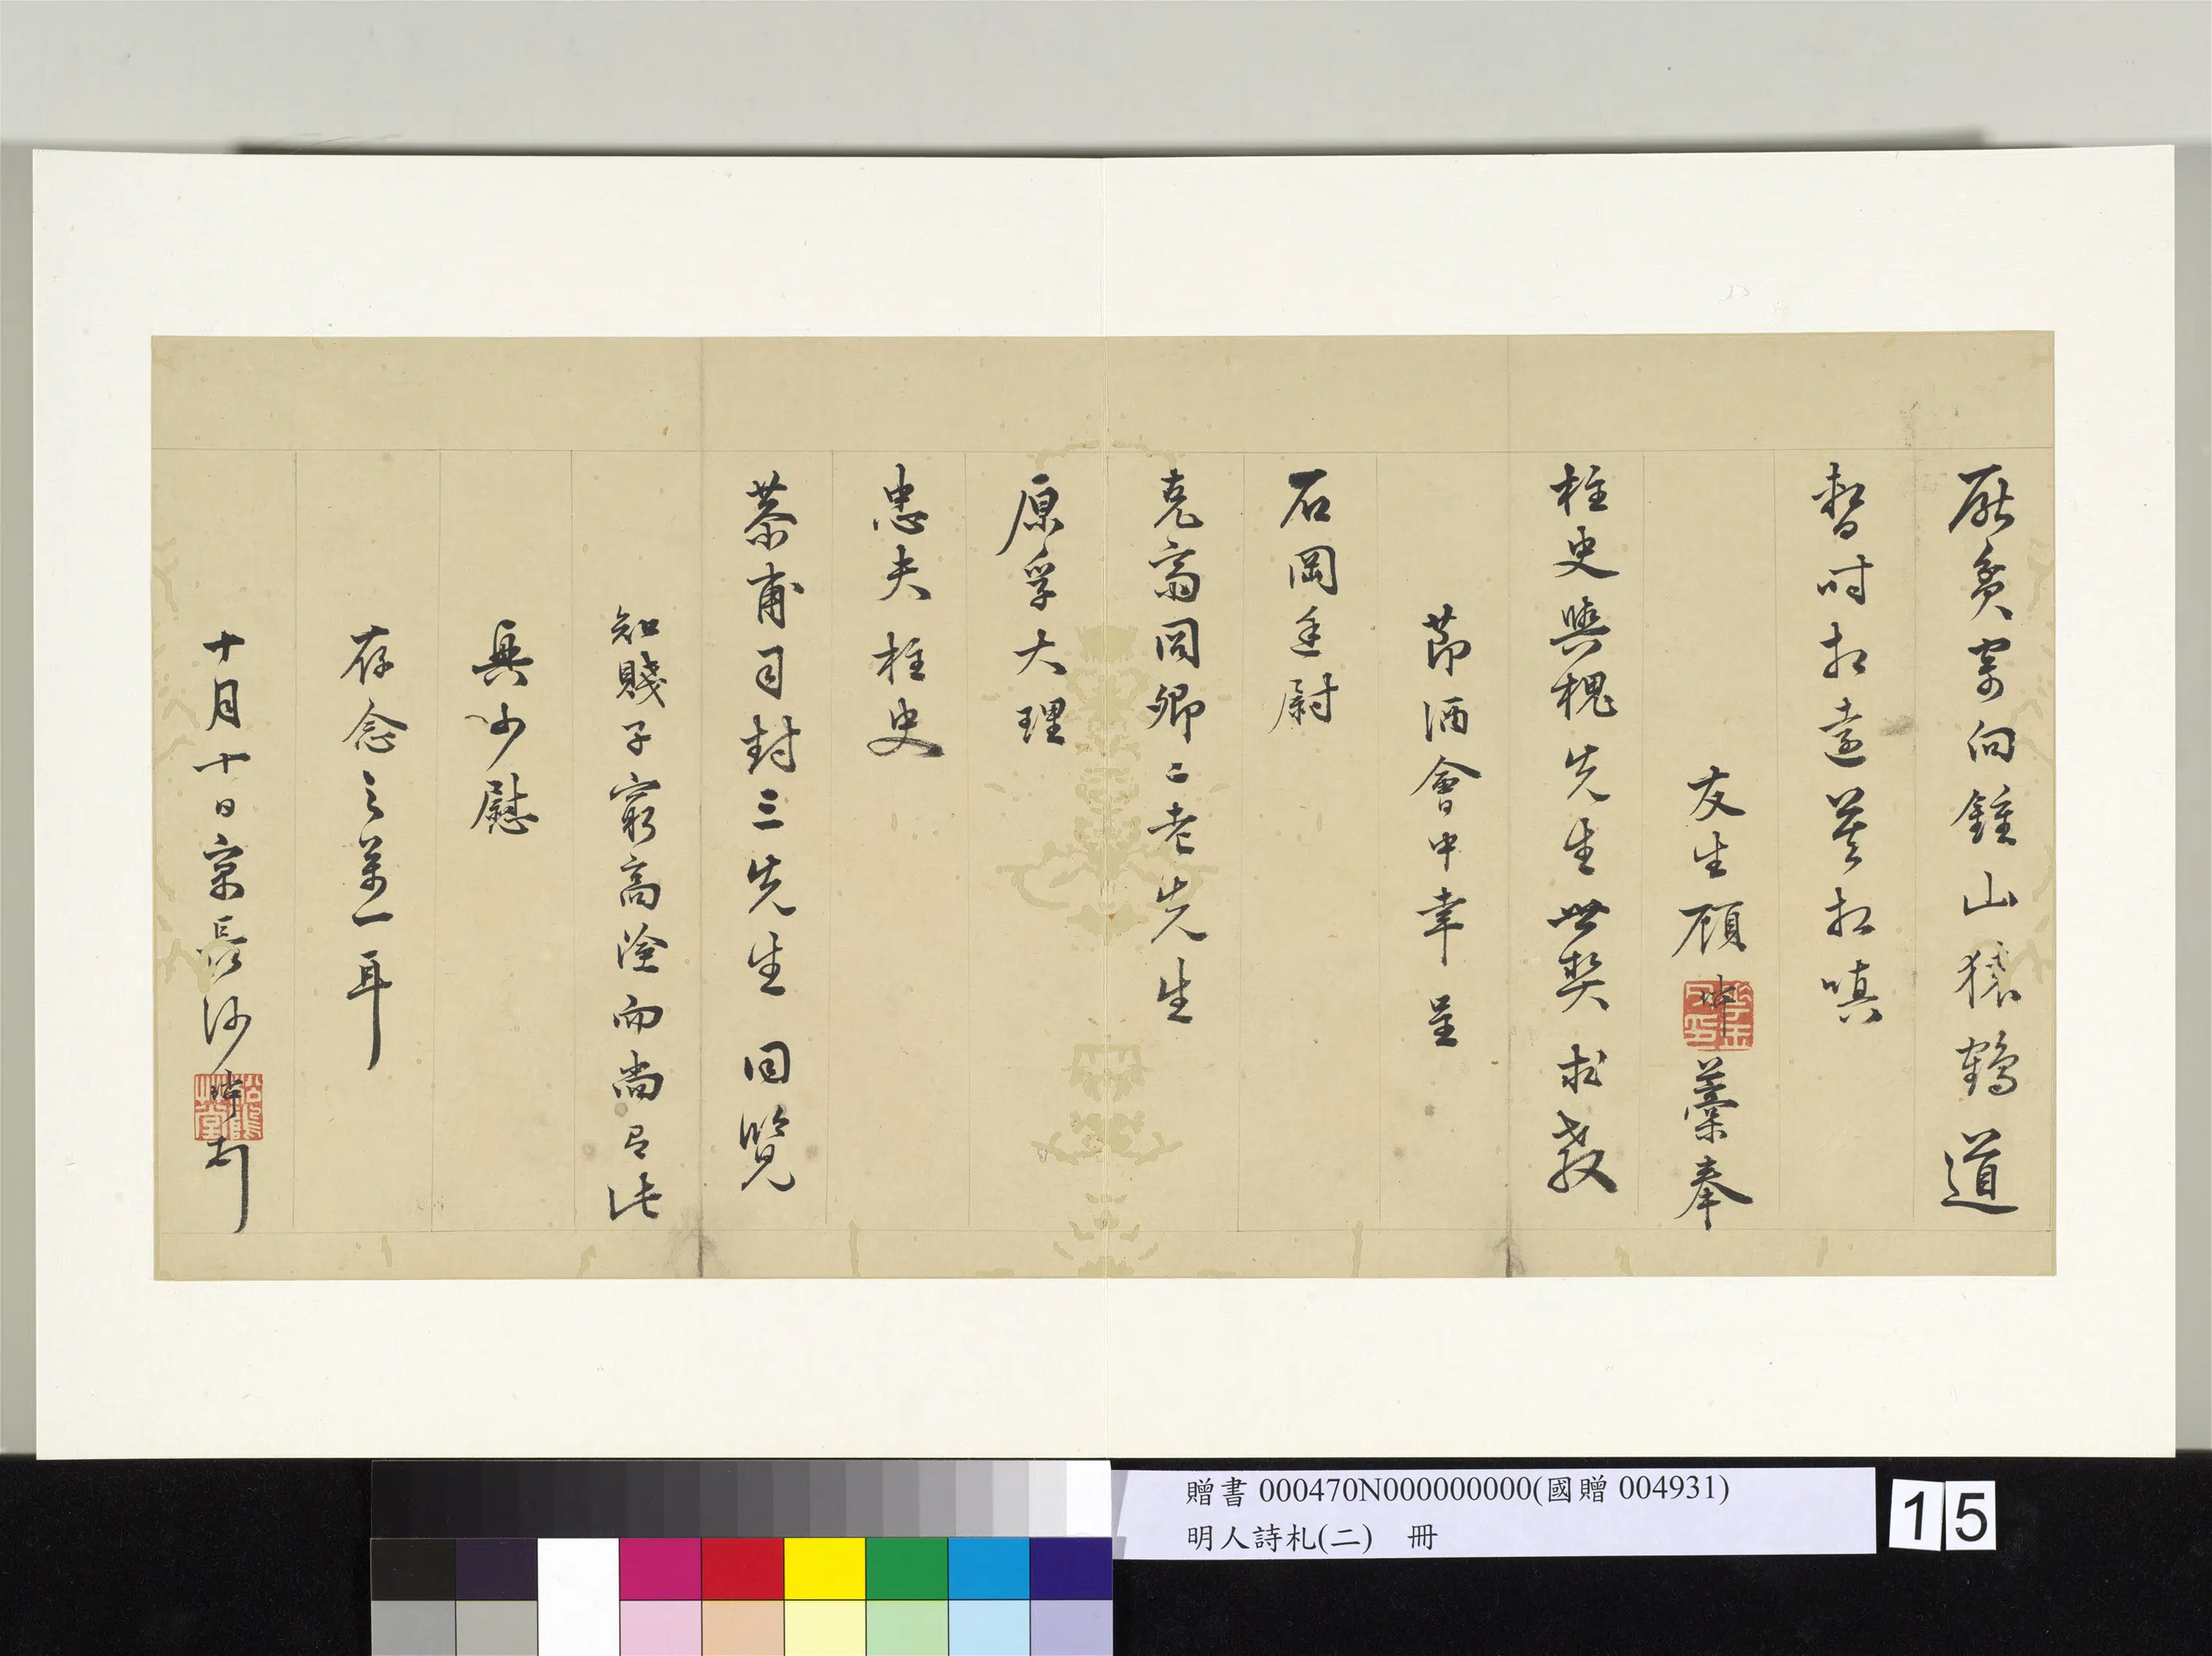 厭貧寄向鍾山猿鶴道
暫時相遠莫相嗔
友生顧 藁奉
柱史與槐先生世契求教
節酒會中幸呈
石岡廷尉
克齋冏卿二老先生
原孚大理
忠夫柱史
恭甫司封三先生同覽
知賤子窮高途而尚有此
興少慰
存念之萬一耳
十月十日寓長沙
贈書 000470N000000000(國贈 004931)
明人詩札(二) 冊
15